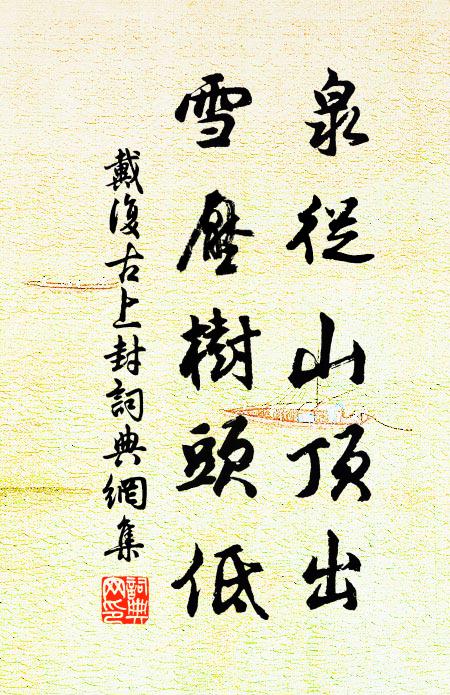 泉從山頂出
雪壓樹頭低
戴復古上封詞典網集
詞典
网印